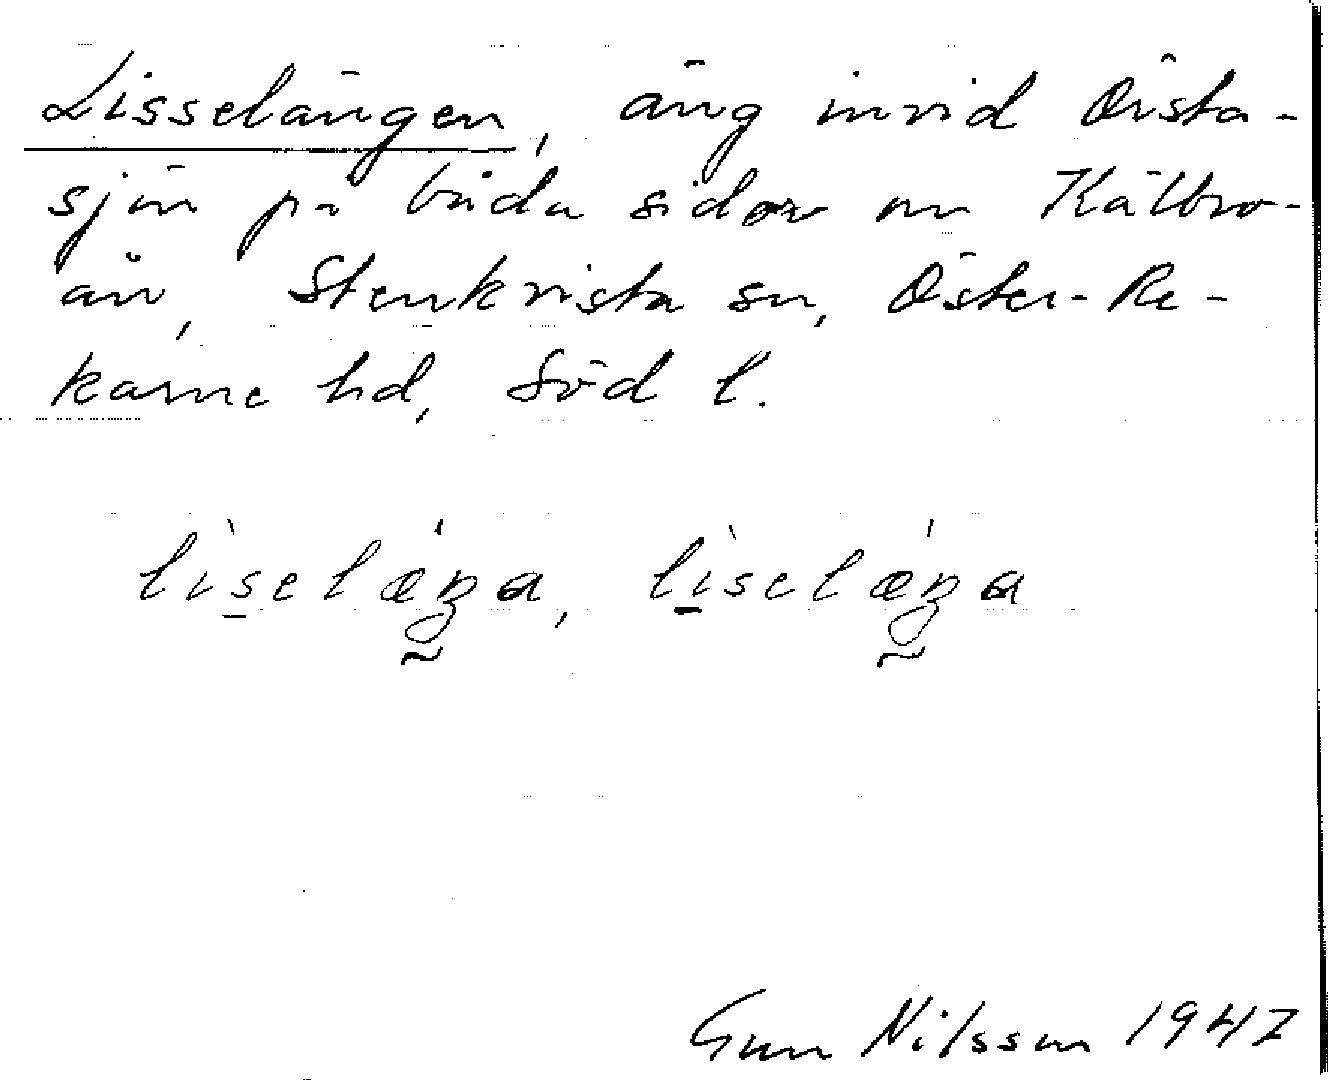 Lisselängen, äng invid Örsta-
sjön på båda sidor om Kälbro-
ån, Stenkvista sn, Öster-Re-
karne hd, Söd l.
lìselǽŋa, lìselǽŋa
Gun Nilsson 1947